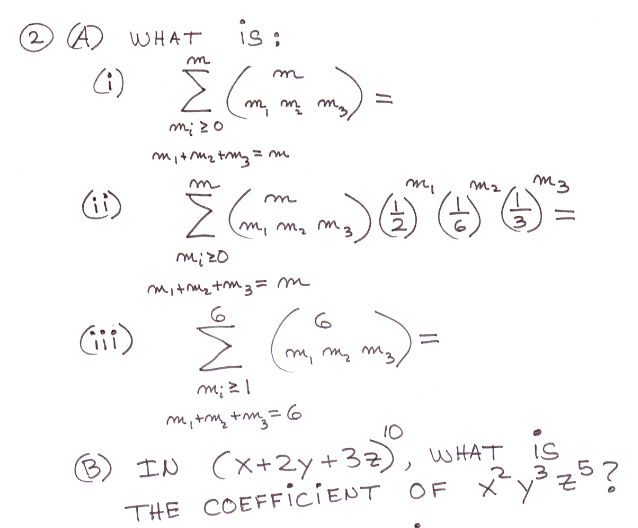 ② Ⓐ WHAT is:
(i) \sum_{m_i \geq 0}^{m} \binom{m}{m_1 m_2 m_3} =
m_1+m_2+m_3=m
(ii) \sum_{m_i \geq 0}^{m} \binom{m}{m_1 m_2 m_3} (\frac{1}{2})^{m_1} (\frac{1}{6})^{m_2} (\frac{1}{3})^{m_3} =
m_1+m_2+m_3=m
(iii) \sum_{m_i \geq 1}^{6} \binom{6}{m_1 m_2 m_3} =
m_1+m_2+m_3=6
Ⓑ IN (x+2y+3z)^{10}, WHAT is
THE COEFFiCiENT OF x^2 y^3 z^5?